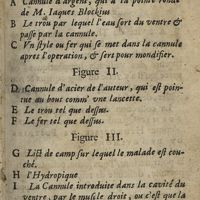 A Cannule d'argent, qui a la pointe ronde
de M. Iaques Blockius
B Le trou par lequel l'eau sort du ventre &
passe par la cannule.
C Vn style ou fer qui se met dans la cannule
apres l'operation, & sert pour mondifier.
Figure II.
D Cannule d'acier de l'auteur, qui est poin-
tue au bout comm' vne lancette.
E Le trou tel que dessus.
F Le fer tel que dessus.
Figure III.
G Lict de camp sur lequel le malade est cou-
ché.
H l'Hydropique
I La Cannule introduite dans la cavité du
ventre, par le muscle droit, ou c'est que la